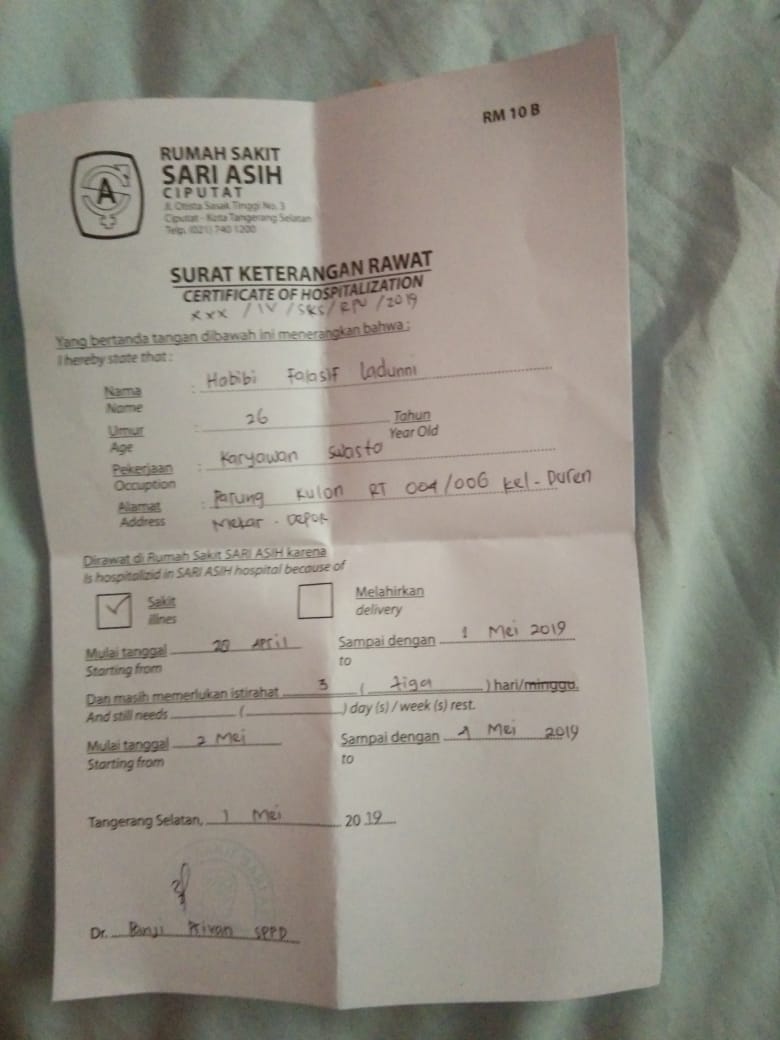 RM 10 B
RUMAH SAKIT
SARI ASIH
CIPUTAT
Jl. Otista Sasak Tinggi No. 3
Ciputat - Kota Tangerang Selatan
Telp. (021) 740 1200
SURAT KETERANGAN RAWAT
CERTIFICATE OF HOSPITALIZATION
xxx / IV / SKS / RPU / 2019
Yang bertanda tangan dibawah ini menerangkan bahwa :
I hereby state that :
Nama : Habibi Falasif Ladunni
Name
Umur : 26 Tahun
Age Year Old
Pekerjaan : Karyawan Swasta
Occuption
Alamat : Parung Kulon RT 004/006 Kel. Duren
Address Mekar - Depok
Dirawat di Rumah Sakit SARI ASIH karena
Is hospitalizid in SARI ASIH hospital because of
Sakit Melahirkan
illnes delivery
Mulai tanggal April Sampai dengan 1 Mei 2019
Starting from to
Dan masih memerlukan istirahat 3 ( tiga ) hari/minggu.
And still needs ( ) day (s) / week (s) rest.
Mulai tanggal 2 Mei Sampai dengan Mei 2019
Starting from to
Tangerang Selatan, 1 Mei 20 19
Dr. Panji SPPD